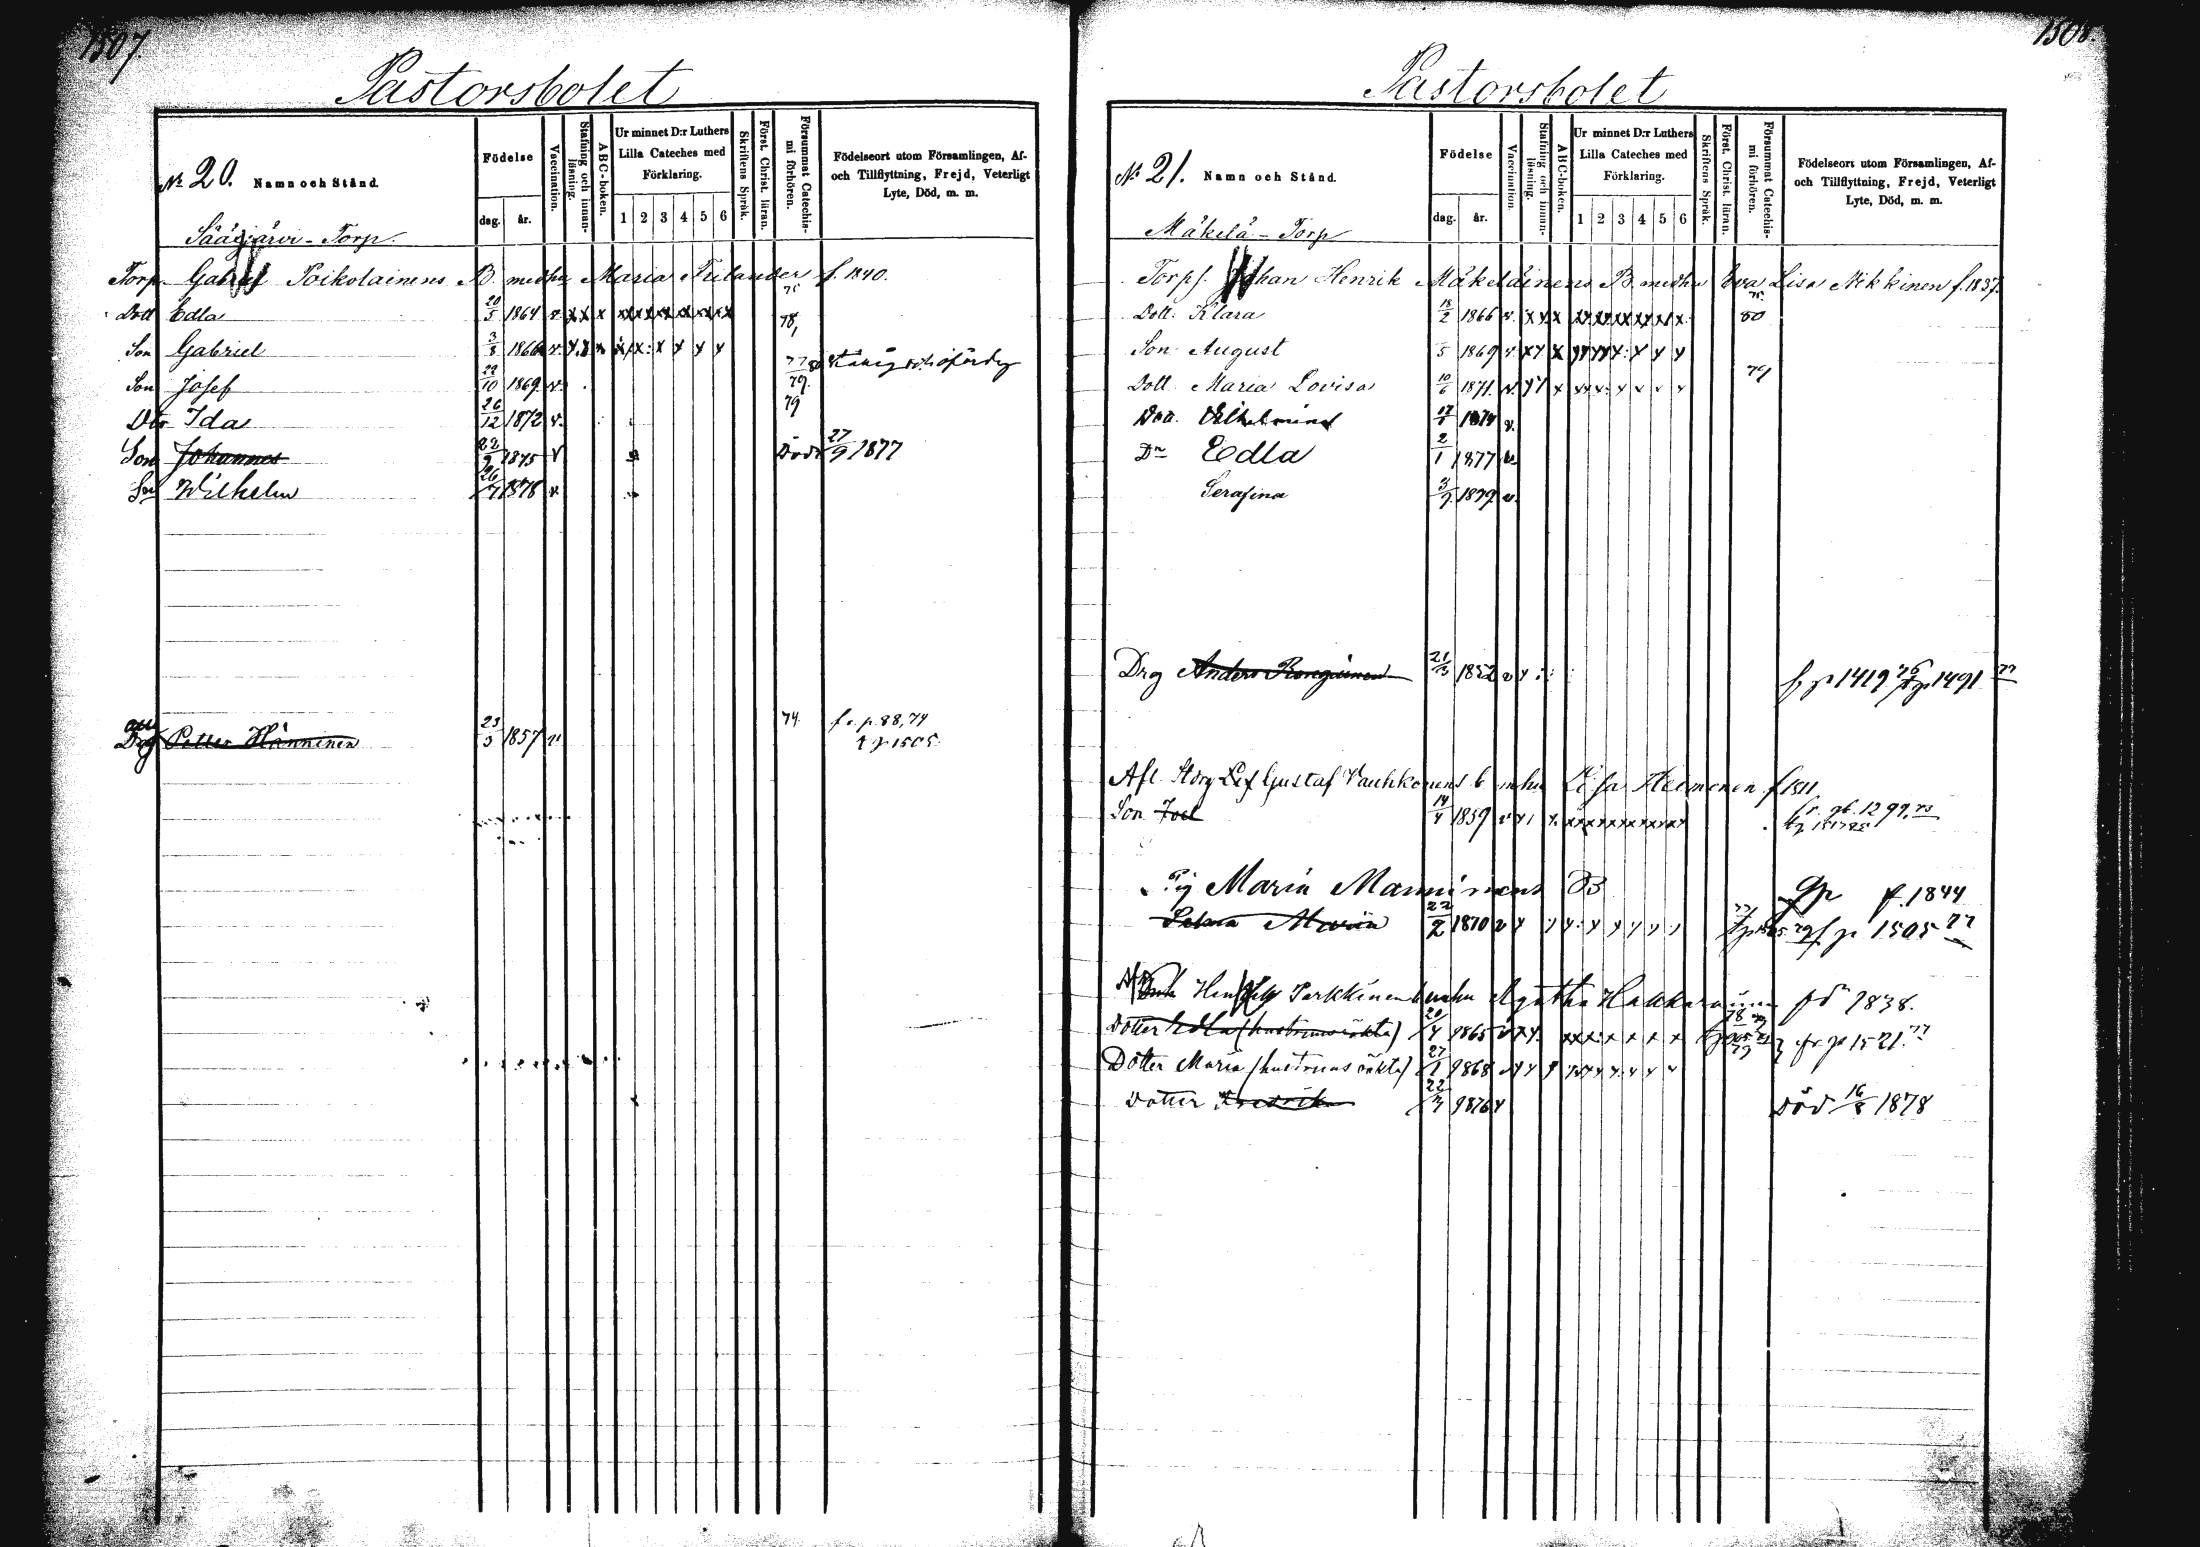 1507.
Pastorsbolet
No 20. Namn och Stånd.
Födelse
dag. år.
Vaccination.
Stafning och innan-läsning.
ABC-boken.
Ur minnet D:r Luthers Lilla Cateches med Förklaring.
1 2 3 4 5 6
Skriftens Språk.
Först. Christ. läran.
Försummat Catechis-mi förhören.
Födelseort utom Församlingen, Af- och Tillflyttning, Frejd, Veterligt Lyte, Död, m. m.
Sääsjärvi - Torp.
Torp. Gabriel Poikolainens B. medhu Maria Frilander f. 1840.
Dott Edla 20/5 1864 v. x x x 75 78,
Son Gabriel 3/3 1866 v.
Son Josef 22/10 1869 v. 79.
Dtr Ida 26/12 1872 v. 79
Son Johannes 22/9 1875 v Död 27/9 1877
Sn Wilhelm 26/7 1878 v.
Drg Petter Hänninen 23/3 1857 v. 74. fr. p. 88, 74
t p 1505.
1508.
Pastorsbolet
No 21. Namn och Stånd.
Födelse
dag. år.
Vaccination.
Stafning och innan-läsning.
ABC-boken.
Ur minnet D:r Luthers Lilla Cateches med Förklaring.
1 2 3 4 5 6
Skriftens Språk.
Först. Christ. läran.
Försummat Catechis-mi förhören.
Födelseort utom Församlingen, Af- och Tillflyttning, Frejd, Veterligt Lyte, Död, m. m.
Mäkelä - Torp
Torp. Johan Henrik Mäkeläinens B. medhu Eva Lisa Nikkinen f. 1837.
Dott. Klara 18/2 1866 v. x x x 75. 80
Son August 1869 v. x x x
Dott. Maria Lovisa 10/6 1871. v. 79
Vilhelmina 1874 v.
Dr Edla 2/1 1877 v.
Serafina 3/7 1879 v.
Drg Anders 21/3 1852 v fr p 1419 76 p 1491 77
Afl. Gustaf Vauhkonens b mhu Lisa f 1811
Son Joel 14/4 1859 v
Pig Maria Manninens B f. 1844
Selma 22/2 1870 v fr p 1505 77
Parkkinen b mhu Agatha Hakkarainen fd 1838.
Dotter Edla (hustruns oäkta) 20/4 1865 v fr p 1521. 77
Dotter Maria (hustruns oäkta) 27/1 1868
Dotter Fredrika 22/7 1876 v Död 16/8 1878